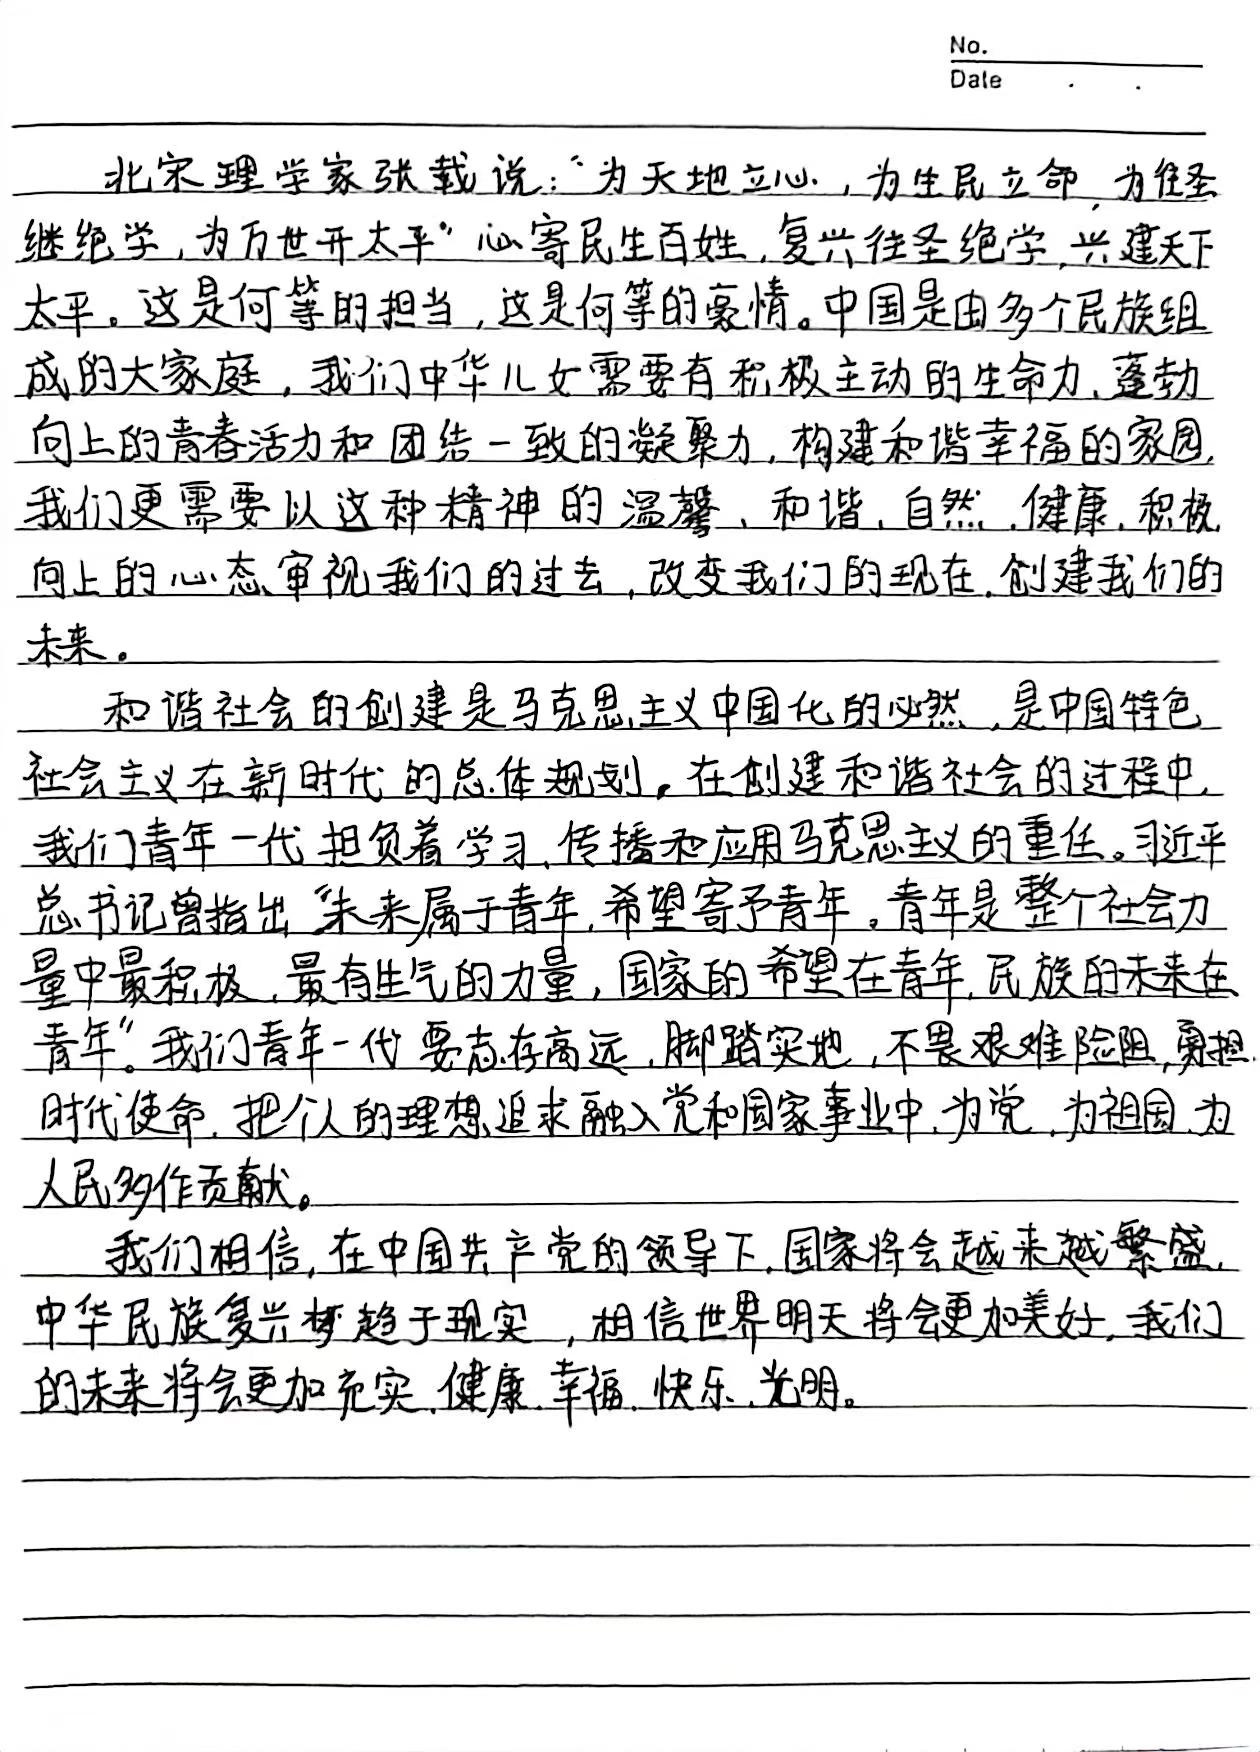 No.
Date
北宋理学家张载说:“为天地立心,为生民立命,为往圣
继绝学,为万世开太平”心寄民生百姓,复兴往圣绝学,兴建天下
太平。这是何等的担当,这是何等的豪情。中国是由多个民族组
成的大家庭,我们中华儿女需要有积极主动的生命力、蓬勃
向上的青春活力和团结一致的凝聚力,构建和谐幸福的家园,
我们更需要以这种精神的温馨、和谐、自然、健康、积极
向上的心态审视我们的过去,改变我们的现在,创建我们的
未来。
和谐社会的创建是马克思主义中国化的必然,是中国特色
社会主义在新时代的总体规划。在创建和谐社会的过程中,
我们青年一代担负着学习、传播和应用马克思主义的重任。习近平
总书记曾指出“未来属于青年,希望寄予青年。青年是整个社会力
量中最积极、最有生气的力量,国家的希望在青年,民族的未来在
青年”。我们青年一代要志存高远,脚踏实地,不畏艰难险阻,勇担
时代使命,把个人的理想追求融入党和国家事业中,为党、为祖国、为
人民多作贡献。
我们相信,在中国共产党的领导下,国家将会越来越繁盛,
中华民族复兴梦趋于现实,相信世界明天将会更加美好,我们
的未来将会更加充实、健康、幸福、快乐、光明。